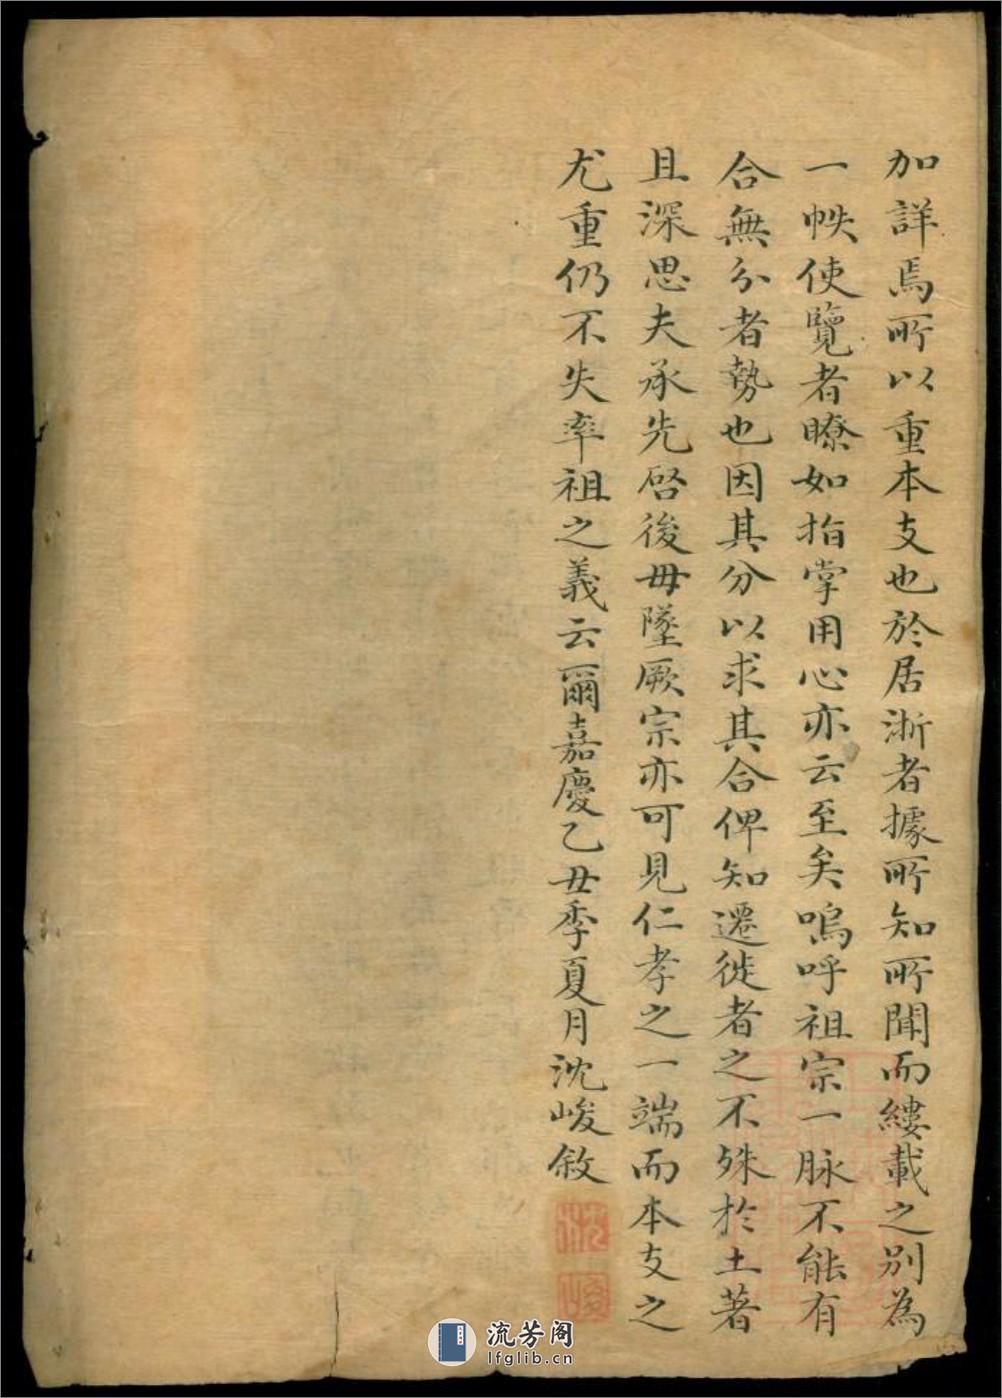 加詳焉所以重本支也於居浙者據所知所聞而縷載之別為
一帙使覽者瞭如指掌用心亦云至矣嗚呼祖宗一脉不能有
合無分者勢也因其分以求其合俾知遷徙者之不殊於土著
且深思夫承先啓後毋墜厥宗亦可見仁孝之一端而本支之
尤重仍不失率祖之義云爾嘉慶乙丑季夏月沈峻敘
沈
峻
流芳阁
lfglib.cn